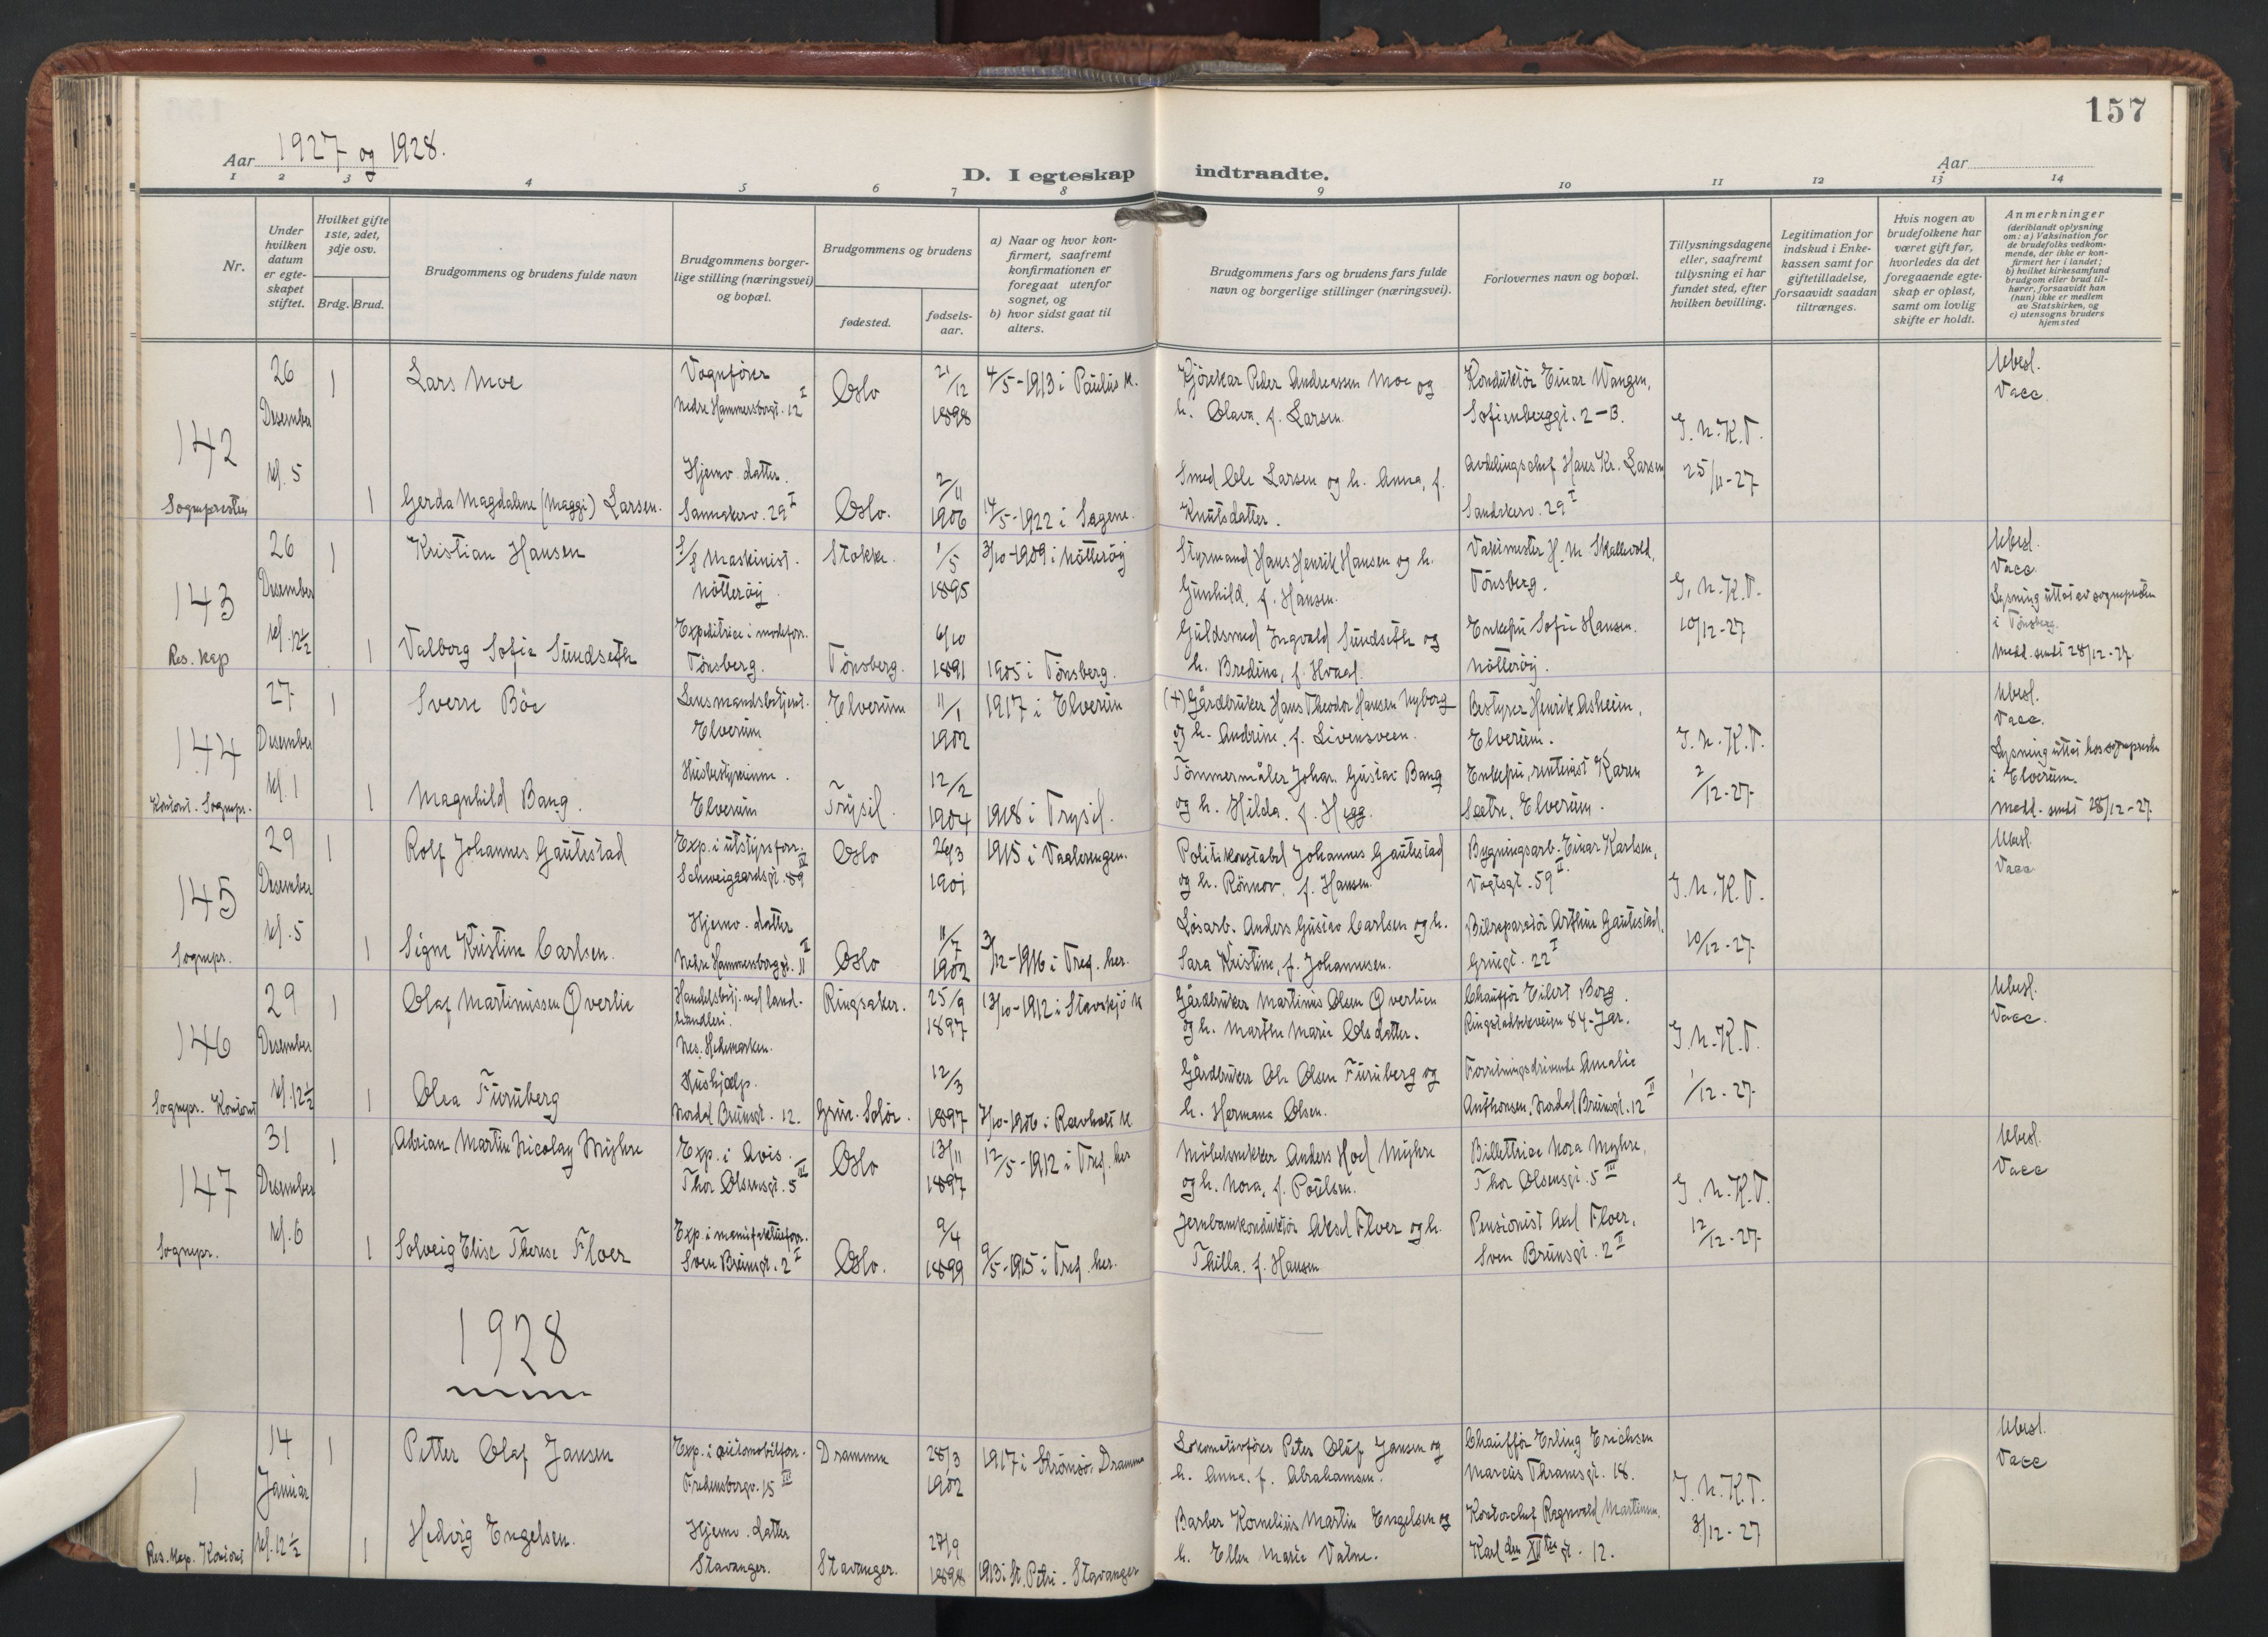 157
Aar 1927 og 1928.
D. I egteskap indtraadte.
Aar
1 2 3 4 5 6 7 8 9 10 11 12 13 14
Nr.
Under hvilken datum er egte-skapet stiftet.
Hvilket gifte 1ste, 2det, 3dje osv.
Brdg. Brud.
Brudgommens og brudens fulde navn
Brudgommens borger-lige stilling (næringsvei) og bopæl.
Brudgommens og brudens
fødested.
fødsels-aar.
a) Naar og hvor kon-firmert, saafremt konfirmationen er foregaat utenfor sognet, og
b) hvor sidst gaat til alters.
Brudgommens fars og brudens fars fulde navn og borgerlige stillinger (næringsvei).
Forlovernes navn og bopæl.
Tillysningsdagene eller, saafremt tillysning ei har fundet sted, efter hvilken bevilling.
Legitimation for indskud i Enke-kassen samt for giftetilladelse, forsaavidt saadan tiltrænges.
Hvis nogen av brudefolkene har været gift før, hvorledes da det foregaaende egte-skap er opløst, samt om lovlig skifte er holdt.
Anmerkninger (deriblandt oplysning om: a) Vaksination for de brudefolks vedkom-mende, der ikke er kon-firmert her i landet; b) hvilket kirkesamfund brudgom eller brud til-hører, forsaavidt han (hun) ikke er medlem av Statskirken, og c) utensogns bruders hjemsted
142 Sognepresten
26 Desember kl. 5
1 Lars Moe
Vognfører Nedre Hammersborggt. 12 I
Oslo
21/12 1898
4/5-1913 i Paulus K.
Kjørekar Peder Andreassen Moe og h. Olava, f. Larsen.
Konduktør Einar Wangen, Sofienberggt. 2-B.
J. N. K. T. 25/11-27
Ubesl. Vacc.
1 Gerda Magdalene (Maggi) Larsen.
Hjemv. datter. Sannakerv. 29 I
Oslo.
2/11 1906
14/5-1922 i Sagene.
Smed Ole Larsen og h. Anna, f. Knutsdatter.
Avdelingschef Hans Kr. Larsen Sandakerv. 29 I
143 Res. kap
26 Desember kl. 12½
1 Kristian Hansen
Maskinist. Nøtterøy
Stokke
1/5 1895
3/10-1909 i Nøtterøy
Styrmand Hans Henrik Hansen og h. Gunhild, f. Hansen.
Vaktmester H. M. Skallevold, Tønsberg.
J. N. K. T. 10/12-27
Ubesl. Vacc.
Lysning uttat av sognepresten i Tønsberg.
Medd. sendt 28/12-27.
1 Valborg Sofie Sundseth
Expeditrice i modeforr. Tønsberg.
Tønsberg.
6/10 1891
1905 i Tønsberg.
Guldsmed Ingvald Sundseth og h. Bredine, f. Hvaal.
Enkefru Sofie Hansen. Nøtterøy.
144 Kontoret. Sognepr.
27 Desember kl. 1
1 Sverre Bøe
Lensmandsbetjent. Elverum
Elverum
11/1 1902
1917 i Elverum
(+) Gårdbruker Hans Theodor Hansen Nyborg og h. Andrine, f. Livensveen.
Bestyrer Henrik Asheim, Elverum.
J. N. K. T. 2/12-27
Ubesl. Vacc.
Lysning uttat hos sognepresten i Elverum.
Medd. sendt 28/12-27
1 Magnhild Bang.
Husbestyrerinne. Elverum
Trysil
12/2 1904
1918 i Trysil.
Tømmermåler Johan Gustav Bang og h. Hilda, f.
Enkefru, rentenist Karen Sætre, Elverum.
145 Sognepr.
29 Desember kl. 5
1 Rolf Johannes Gautestad
Exp. i utstyrsforr. Schweigaardsgt. 89 IV
Oslo
26/3 1901
1915 i Vaalerengen.
Politikonstabel Johannes Gautestad og h. Rønnov, f. Hansen.
Bygningsarb. Einar Karlsen, Vogtsgt. 59 II.
J. N. K. T. 10/12-27
Ubesl. Vacc
1 Signe Kristine Carlsen.
Hjemv. datter Nedre Hammersborggt. 11 II
Oslo
11/7 1902
3/12-1916 i Tref. her.
Løsarb. Anders Gustav Carlsen og h. Sara Kristine, f. Johannesen.
Bilreparatør Arthur Gautestad, Gruegt. 22 I
146 Sognepr. Kontoret
29 Desember kl. 12½
1 Olaf Martinussen Øverlie
Handelsbetj. ved land-handleri. Nes. Hedemarken.
Ringsaker.
25/9 1897
13/10-1912 i Stavsjø K
Gårdbruker Martinus Olsen Øverlien og h. Marthe Marie Olsdatter.
Chauffør Eilert Berg. Ringstadbekveien 84 - Jar.
J. N. K. T. 1/12-27
Ubesl. Vacc.
1 Olea Furuberg
Hushjælp. Nordal Brunsgt. 12.
Grue-Solør.
12/3 1897
Gårdbruker Ole Olsen Furuberg og h. Hermana Olsen.
Forretningsdrivende Amalie Anthonsen, Nordal Brunsgt. 12 II
147 Sognepr.
31 Desember kl. 6
1 Adrian Martin Nicolay Myhre
Exp. i Avis. Thor Olsensgt. 5 III
Oslo
13/11 1897
12/5-1912 i Tref. her
Møbelsnekker Anders Hoel Myhre og h. Nora, f. Poulsen.
Billettrice Nora Myhre, Thor Olsensgt. 5 III
J. N. K. T. 12/12-27
Ubesl. Vacc
1 Solveig Elise Therese Floer
Exp. i manufakturforr. Sven Brunsgt. 2 I
Oslo.
9/4 1899
9/5-1915 i Tref. her.
Jernbanekonduktør Aksel Floer og h. Thilla, f. Hansen
Pensionist Axel Floer, Sven Brunsgt. 2 II
1928
1 Res. kap. Kontoret
14 Januar kl. 12½
1 Petter Olaf Jansen
Exp. i automobilforr. Fredensborgv. 15 III
Drammen
28/3 1902
1917 i Strømsø, Drammen
Lokomotivfører Peter Oluf Jansen og h. Anna, f. Abrahamsen.
Chauffør Erling Erichsen Marcus Thranesgt. 18.
J. N. K. T. 3/12-27
Ubesl. Vacc
1 Hedvig Engelsen.
Hjemv. datter Stavanger.
Stavanger.
27/9 1898
1913 i St. Petri. Stavanger
Barber Kornelius Martin Engelsen og h. Ellen Marie Vatne.
Kontorchef Ragnvald Martinsen, Karl den XII tes gt. 12.